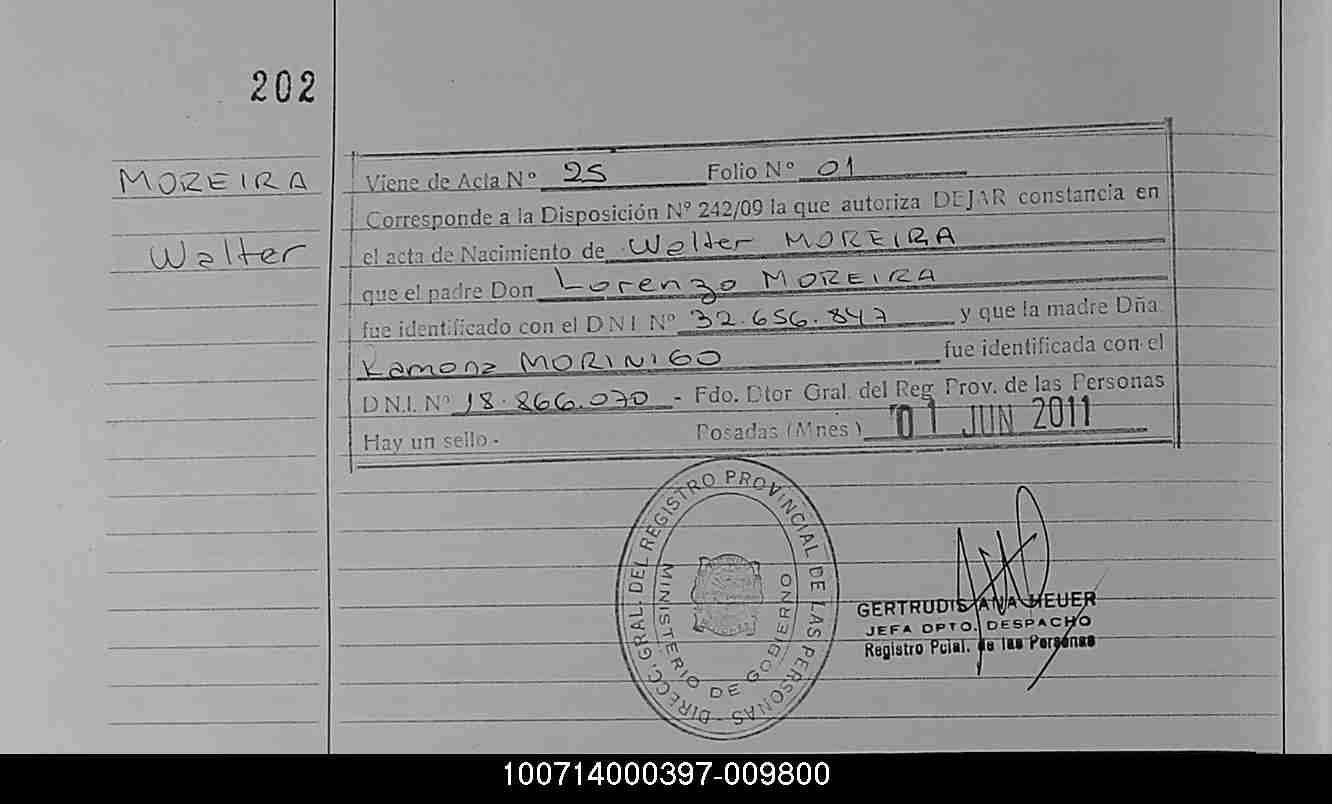 202
MOREIRA
Walter
Viene de Acta Nº 25 Folio Nº 01
Corresponde a la Disposición Nº 242/09 la que autoriza DEJAR constancia en
el acta de Nacimiento de Walter MOREIRA
que el padre Don Lorenzo MOREIRA
fue identificado con el D N I Nº 32.656.847 y que la madre Dña.
Ramona MORINIGO fue identificada con el
D N.I. Nº 18.866.070 - Fdo. Dtor Gral. del Reg Prov. de las Personas
Hay un sello.- Posadas (Mnes) 01 JUN 2011
DIRECC. GRAL. DEL REGISTRO PROVINCIAL DE LAS PERSONAS -
MINISTERIO DE GOBIERNO
GERTRUDIS ANA HEUER
JEFA DPTO. DESPACHO
Registro Pcial. de las Personas
100714000397-009800